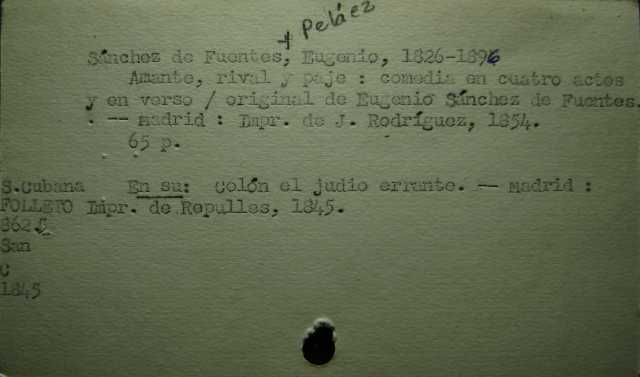 + Peláez
Sánchez de Fuentes, Eugenio, 1826-1896
Amante, rival y paje : comedia en cuatro actos
y en verso / original de Eugenio Sánchez de Fuentes.
. -- Madrid : Impr. de J. Rodríguez, 1854.
65 p.
S.Cubana En su: Colón el judio errante. -- Madrid :
FOLLETO Impr. de Repulles, 1845.
862.
San
C
1845